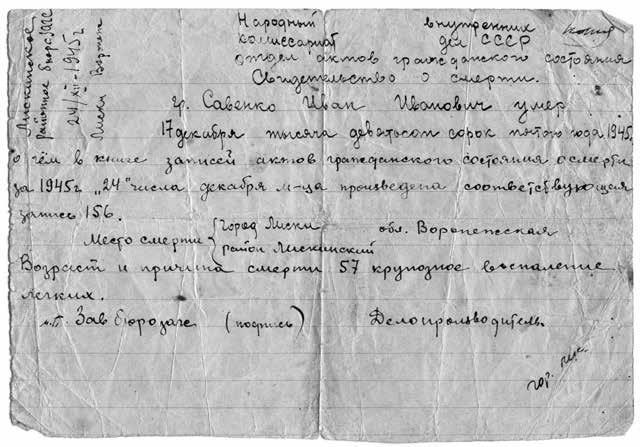 Народный внутренних
комиссариат дел СССР
отдел актов гражданского состояния
Свидетельство о смерти.
копия
Лискинское
Районное бюро ЗАГС
24/XII-1945г
Лиски Ворон
Гр. Савенко Иван Иванович умер
17 декабря тысяча девятьсот сорок пятого года 1945.
о чём в книге записей актов гражданского состояния о смерти
за 1945г „24" числа декабря м-ца произведена соответствующая
запись 156.
Место смерти { город Лиски обл. Воронежская
район Лискинский
Возраст и причина смерти 57 крупозное воспаление
легких.
м.п. Зав бюрозагс (подпись) Делопроизводитель